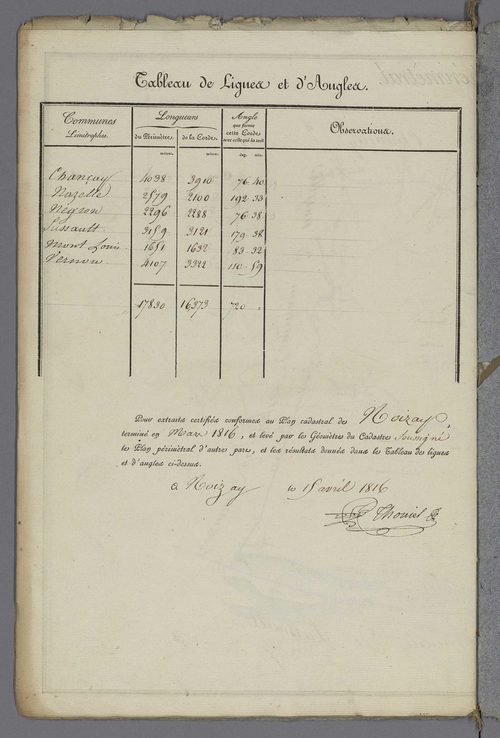 Tableau de Lignes et d'Angles.
Communes Limitrophes. Longueurs Angle que forme cette Corde avec celle qui la suit Observations.
du Périmètre de la Corde
mètres. mètres. deg. min.
Chançay 4038 3910 76 40
Nazelle 2579 2100 192 33
Négron 2296 2288 76 38
Lussault 3159 3121 179 38
Mont Louis 1651 1632 83 32
Vernou 4107 3322 110 59
17830 16373 720 "
Pour extraits certifiés conformes au Plan cadastral de Noizay,
terminé en Mars 1816, et levé par le Géomètre du Cadastre
le Plan périmétral d'autre part, et les résultats donnés dans le Tableau de lignes
et d'angles ci-dessus.
a Noizay le 15 avril 1816